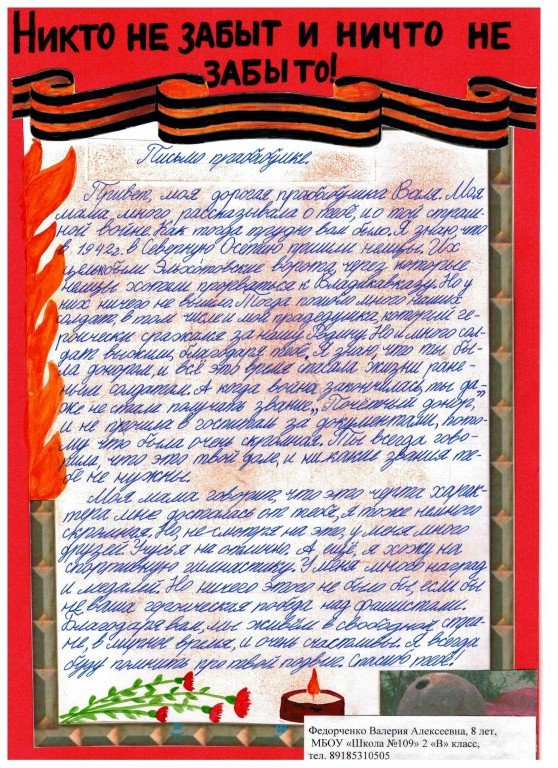 Никто не забыт и ничто не
забыто!
Письмо прабабушке.
Привет, моя дорогая, прабабушка Валя. Моя
мама, много, рассказывала о тебе, и о той страш-
ной войне. Как тогда трудно вам было. Я знаю, что
в 1942г. в Северную Осетию пришли немцы. Их
целью были Эльхотовские ворота, через которые
немцы хотели прорваться к Владикавказу. Но у
них ничего не вышло. Тогда погибло много наших
солдат, в том числе и мой прадедушка, который ге-
роически сражался за нашу Родину. Но и много сол-
дат выжили, благодаря тебе. Я знаю, что ты бы-
ла донором, и всё это время спасала жизни ране-
ным солдатам. А когда война закончилась, ты да-
же не стала получать звание „Почётный донор",
и не пришла в госпиталь за документами, пото-
му что была очень скромная. Ты всегда гово-
рила, что это твой долг, и ни какие звания те-
бе не нужны.
Моя мама говорит, что эта черта харак-
тера мне досталась от тебя, я тоже немного
скромная. Но, не смотря на это, у меня много
друзей. Учусь я на отлично. А, ещё, я хожу на
спортивную гимнастику. У меня много наград
и медалей. Но ничего этого не было бы, если бы
не ваша героическая победа над фашистами.
Благодаря вам, мы живём в свободной стра-
не, в мирное время, и очень счастливы. Я всегда
буду помнить про твой подвиг. Спасибо тебе!
Федорченко Валерия Алексеевна, 8 лет,
МБОУ «Школа №109» 2 «В» класс,
тел. 89185310505